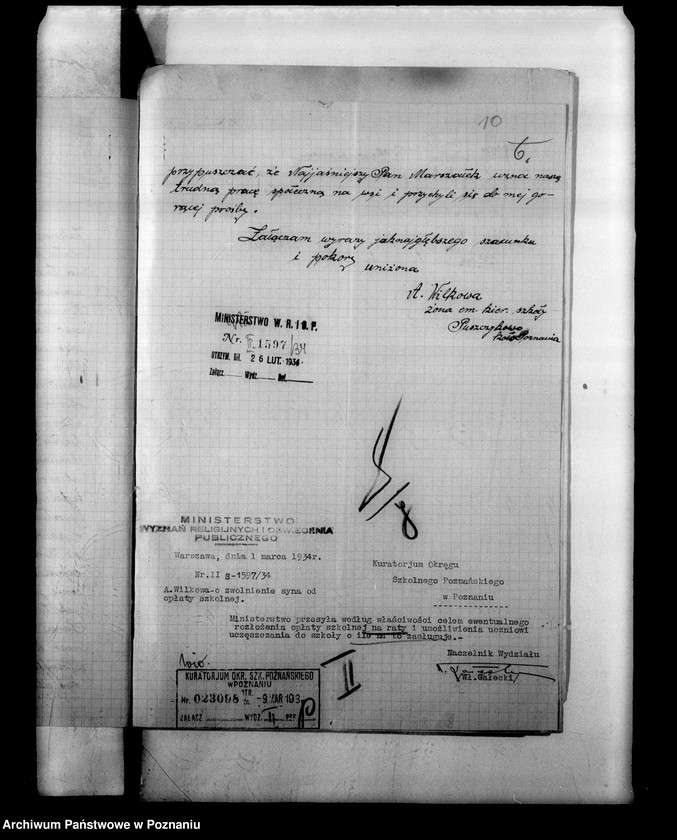 10
6
przypuszczać, że Najjaśniejszy Pan Marszałek uzna naszą
trudną pracę społeczną na wsi i przychyli się do mej go-
rącej prośby.
Załączam wyrazy jaknajgłębszego szacunku
i pokory
uniżona
A. Wilkowa
żona em. kier. szkoły
Puszczykowo
koło Poznania
MINISTERSTWO W. R. i O. P.
Nr. II.S.1597/34
OTRZYM. DN. 26 LUT. 1934
Załącz. Wydz. Ref.
MINISTERSTWO
WYZNAŃ RELIGIJNYCH I OŚWIECENIA
PUBLICZNEGO
Warszawa, dnia 1 marca 1934r.
Nr.II s-1597/34
A.Wilkowa-o zwolnienie syna od
opłaty szkolnej.
Kuratorjum Okręgu
Szkolnego Poznańskiego
w Poznaniu
Ministerstwo przesyła według właściwości celem ewentualnego
rozłożenia opłaty szkolnej na raty i umożliwienia uczniowi
uczęszczania do szkoły o ile na to zasługuje.-
Naczelnik Wydziału
/Wł.Gałecki/
KURATORJUM OKR. SZK. POZNAŃSKIEGO
W POZNANIU
Nr. 023098 OTR. DN. -9 MAR 193
ZAŁĄCZ WYDZ. II REF.
II
Archiwum Państwowe w Poznaniu